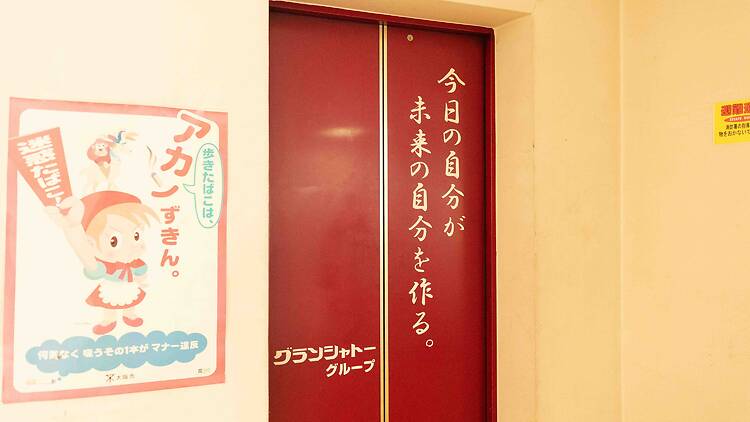 迷惑たばこ!
アカン
ずきん。
歩きたばこは、
何気なく 吸うその1本が マナー違反
大阪市
今日の自分が
未来の自分を作る。
グランシャトー
グループ
物をおかないで